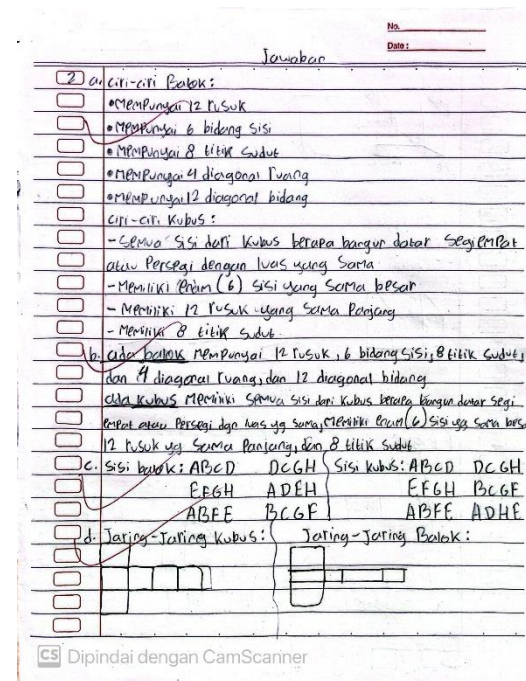 No.
Date :
Jawaban
2 a. Ciri-ciri Balok :
• Mempunyai 12 rusuk
• Mempunyai 6 bidang sisi
• Mempunyai 8 titik sudut
• Mempunyai 4 diagonal ruang
• Mempunyai 12 diagonal bidang
Ciri-ciri Kubus :
- Semua sisi dari kubus berapa bangun datar segiempat
atau Persegi dengan luas yang sama
- Memiliki enam (6) sisi yang sama besar
- Memiliki 12 rusuk yang sama Panjang
- Memiliki 8 titik sudut.
b. ada balok mempunyai 12 rusuk, 6 bidang sisi, 8 titik sudut,
dan 4 diagonal ruang, dan 12 diagonal bidang
ada kubus memiliki semua sisi dari kubus berapa bangun datar segi
empat atau Persegi dgn luas yg sama, memiliki enam (6) sisi yg sama bes
12 rusuk yg sama panjang, dan 8 titik sudut
c. Sisi balok : ABCD DCGH Sisi kubus : ABCD DCGH
EFGH ADEH EFGH BCGF
ABFE BCGF ABFE ADHE
d. Jaring-Jaring Kubus : Jaring-Jaring Balok :
CS Dipindai dengan CamScanner